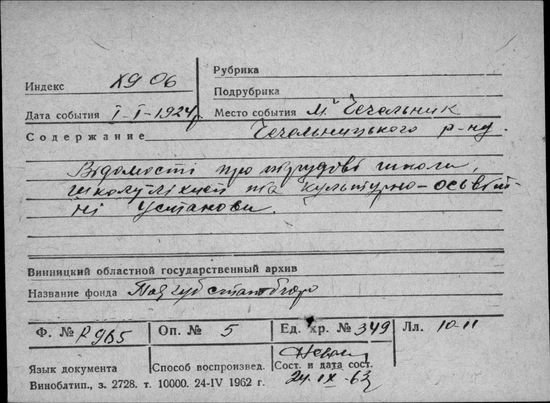 Рубрика
Индекс Х9 06
Подрубрика
Дата события I-I-1924р Место события м. Чечельник
Содержание Чечельницького р-ну.
Відомості про трудові школи,
школу ліхнеп та культурно-освіт-
ні установи.
Винницкий областной государственный архив
Название фонда Подгубстатбюро
Ф. № Р 985 Оп. № 5 Ед. хр. № 349 Лл. 10-11
Язык документа Способ воспроизвед. Сост. и дата сост.
24-IX-63
Виноблтип., з. 2728. т. 10000. 24-IV 1962 г.